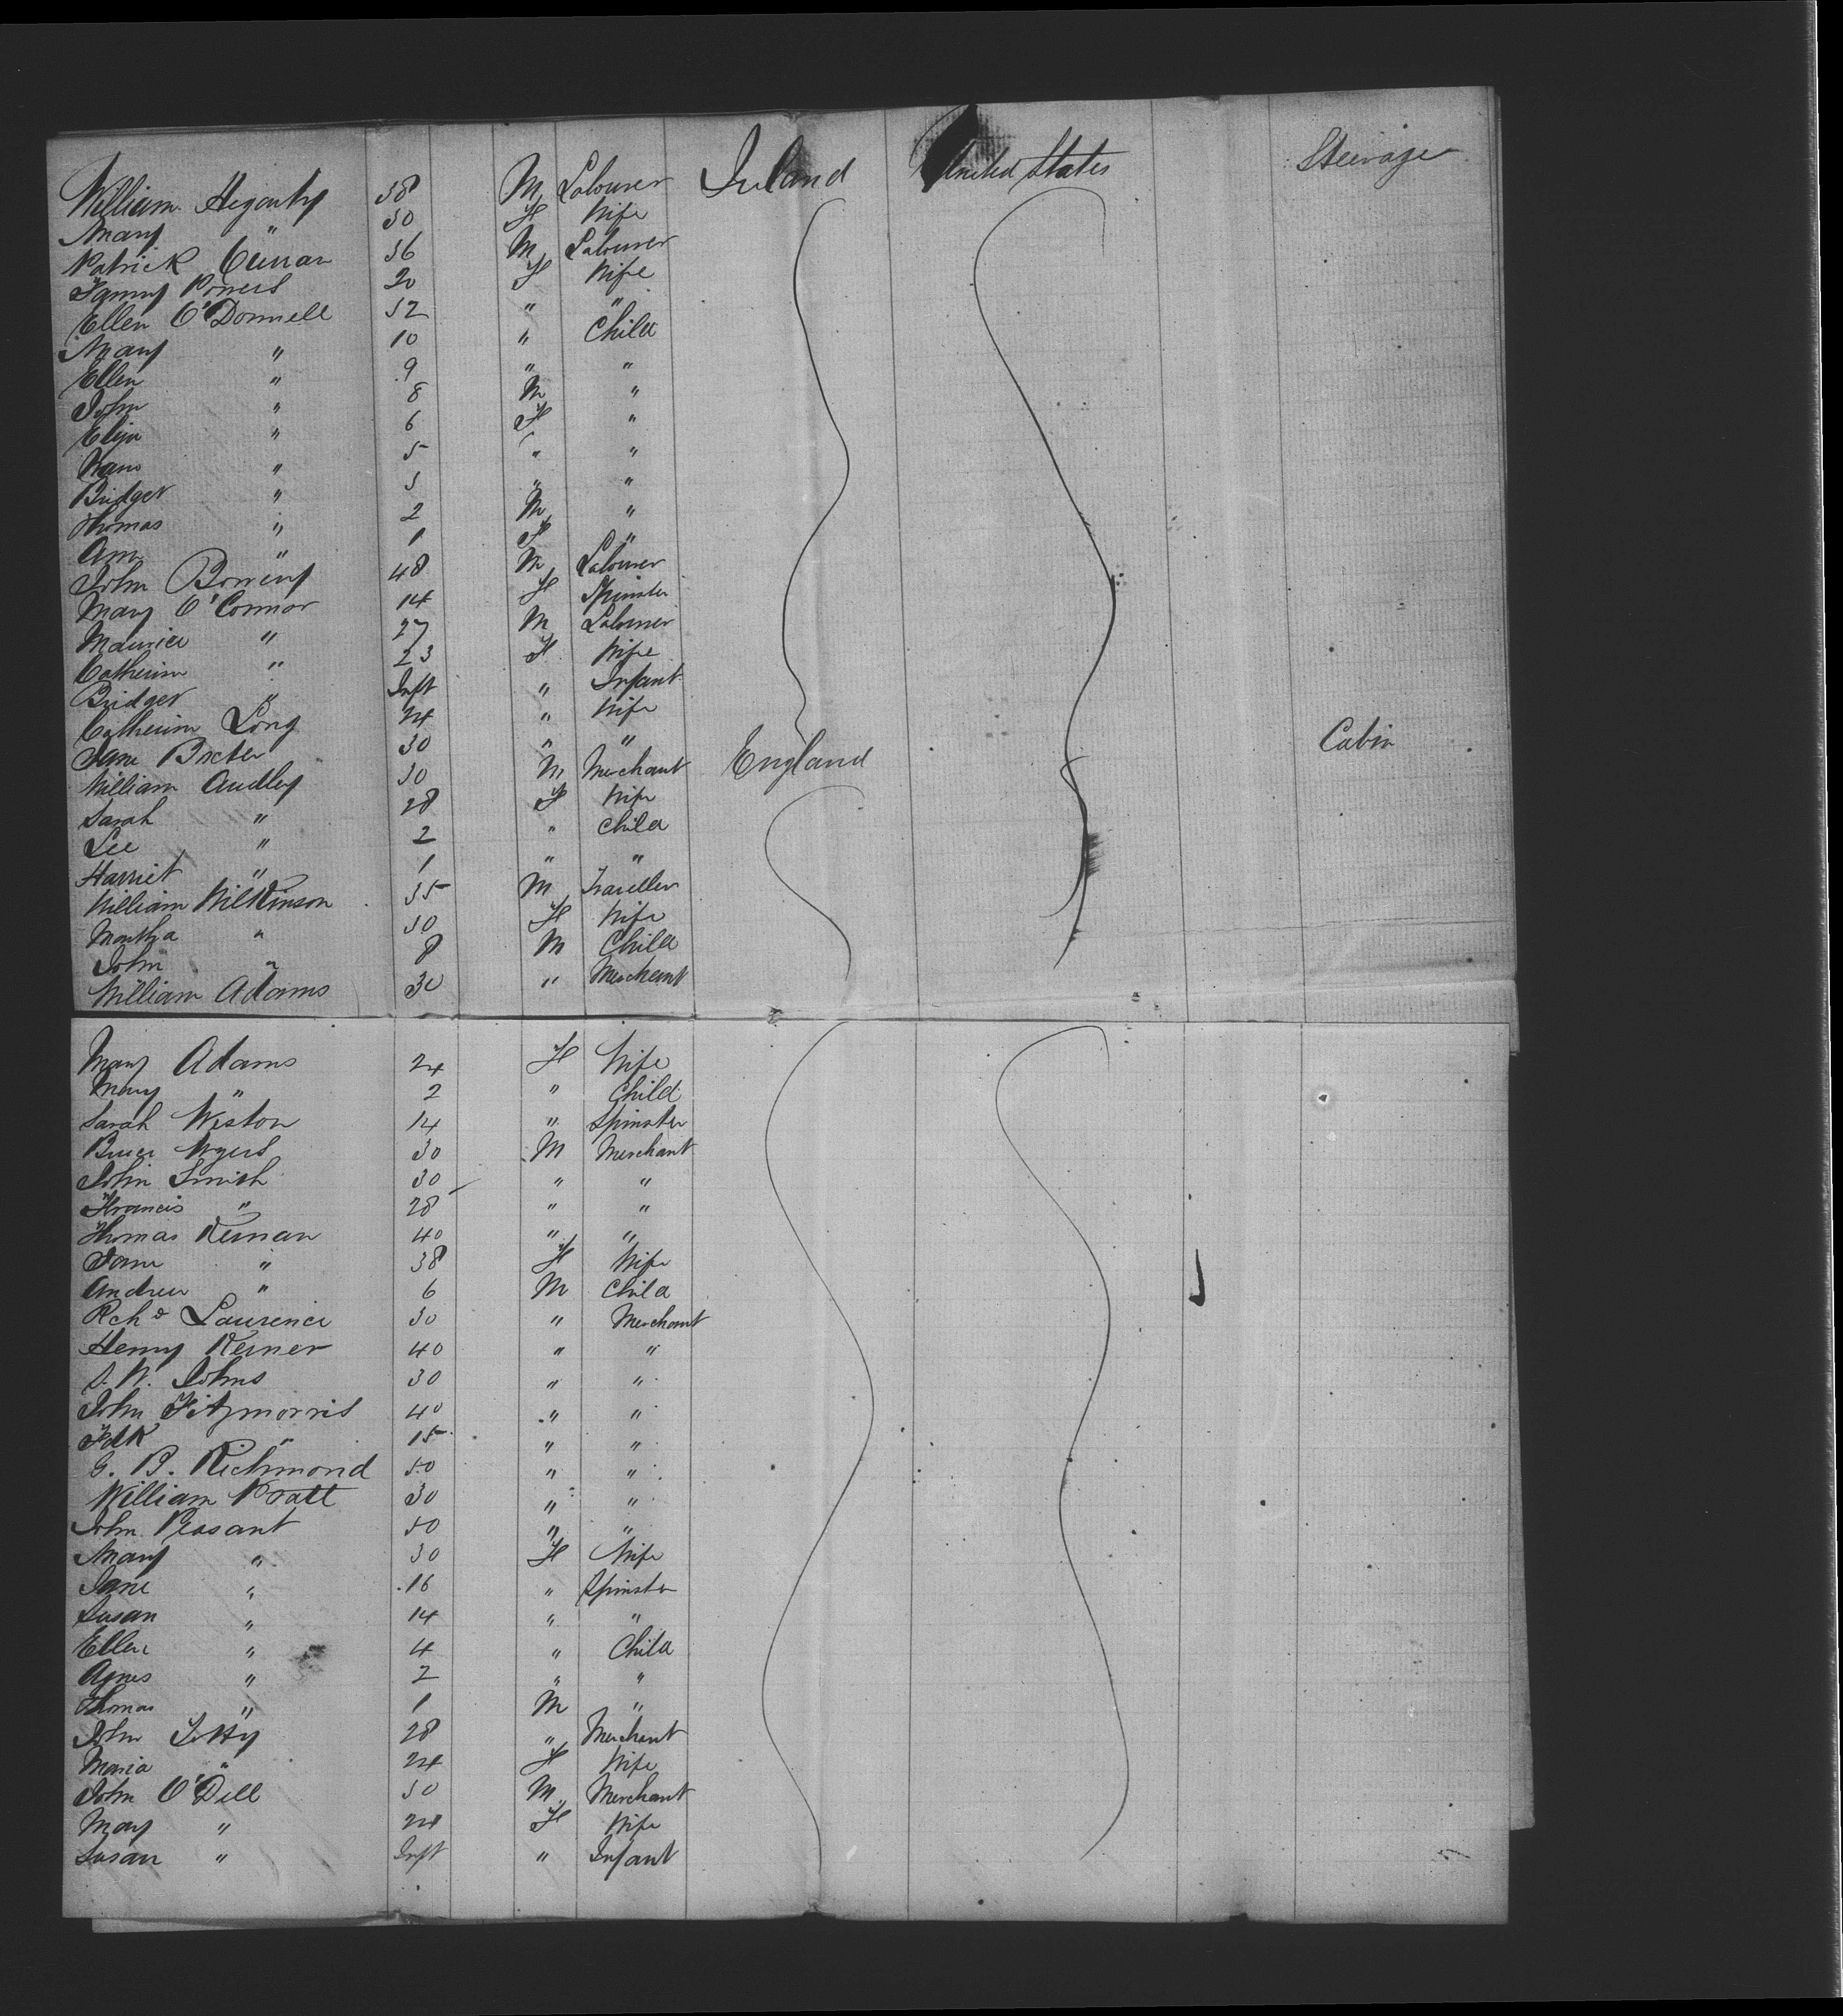 William Hegarty 38 M Labourer Ireland United States Steerage
Mary " 30 F Wife
Patrick Curran 36 M Labourer
Fanny Powers 20 F Wife
Ellen O'Donnell 32 " "
Mary " 10 " Child
Ellen " 9 " "
John " 8 M "
Eliza " 6 F "
" 5 " "
Bridget " 3 " "
Thomas " 2 M "
Ann " 1 F "
John 48 M Labourer
Mary O'Connor 14 F Spinster
Maurice " 27 M Labourer
Catherine " 23 F Wife
Bridget " Inft " Infant
Catherine Long 24 " Wife
Jane 30 " "
William Audley 30 M Merchant England Cabin
Sarah " 28 F Wife
Lee " 2 " Child
Harriet " 1 " "
William Wilkinson 35 M Traveller
Martha " 30 F Wife
John " 8 M Child
William Adams 30 " Merchant
Mary Adams 24 F Wife
Mary " 2 " Child
Sarah Weston 14 " Spinster
Myers 30 M Merchant
John Smith 30 " "
Francis " 28 " "
Thomas Kernan 40 " "
Jane " 38 F Wife
Andrew " 6 M Child
Rchd Laurence 30 " Merchant
Henry Kerner 40 " "
S. W. Johns 30 " "
John Fitzmorris 40 " "
Fdk " 15 " "
G. B. Richmond 50 " "
William Pratt 30 " "
John Peasant 50 " "
Mary " 30 F Wife
Jane " 16 " Spinster
Susan " 14 " "
Ellen " 4 " Child
Agnes " 2 " "
Thomas " 1 M "
John 28 " Merchant
Maria " 24 F Wife
John O'Dell 30 M Merchant
Mary " 24 F Wife
Susan " Inft " Infant